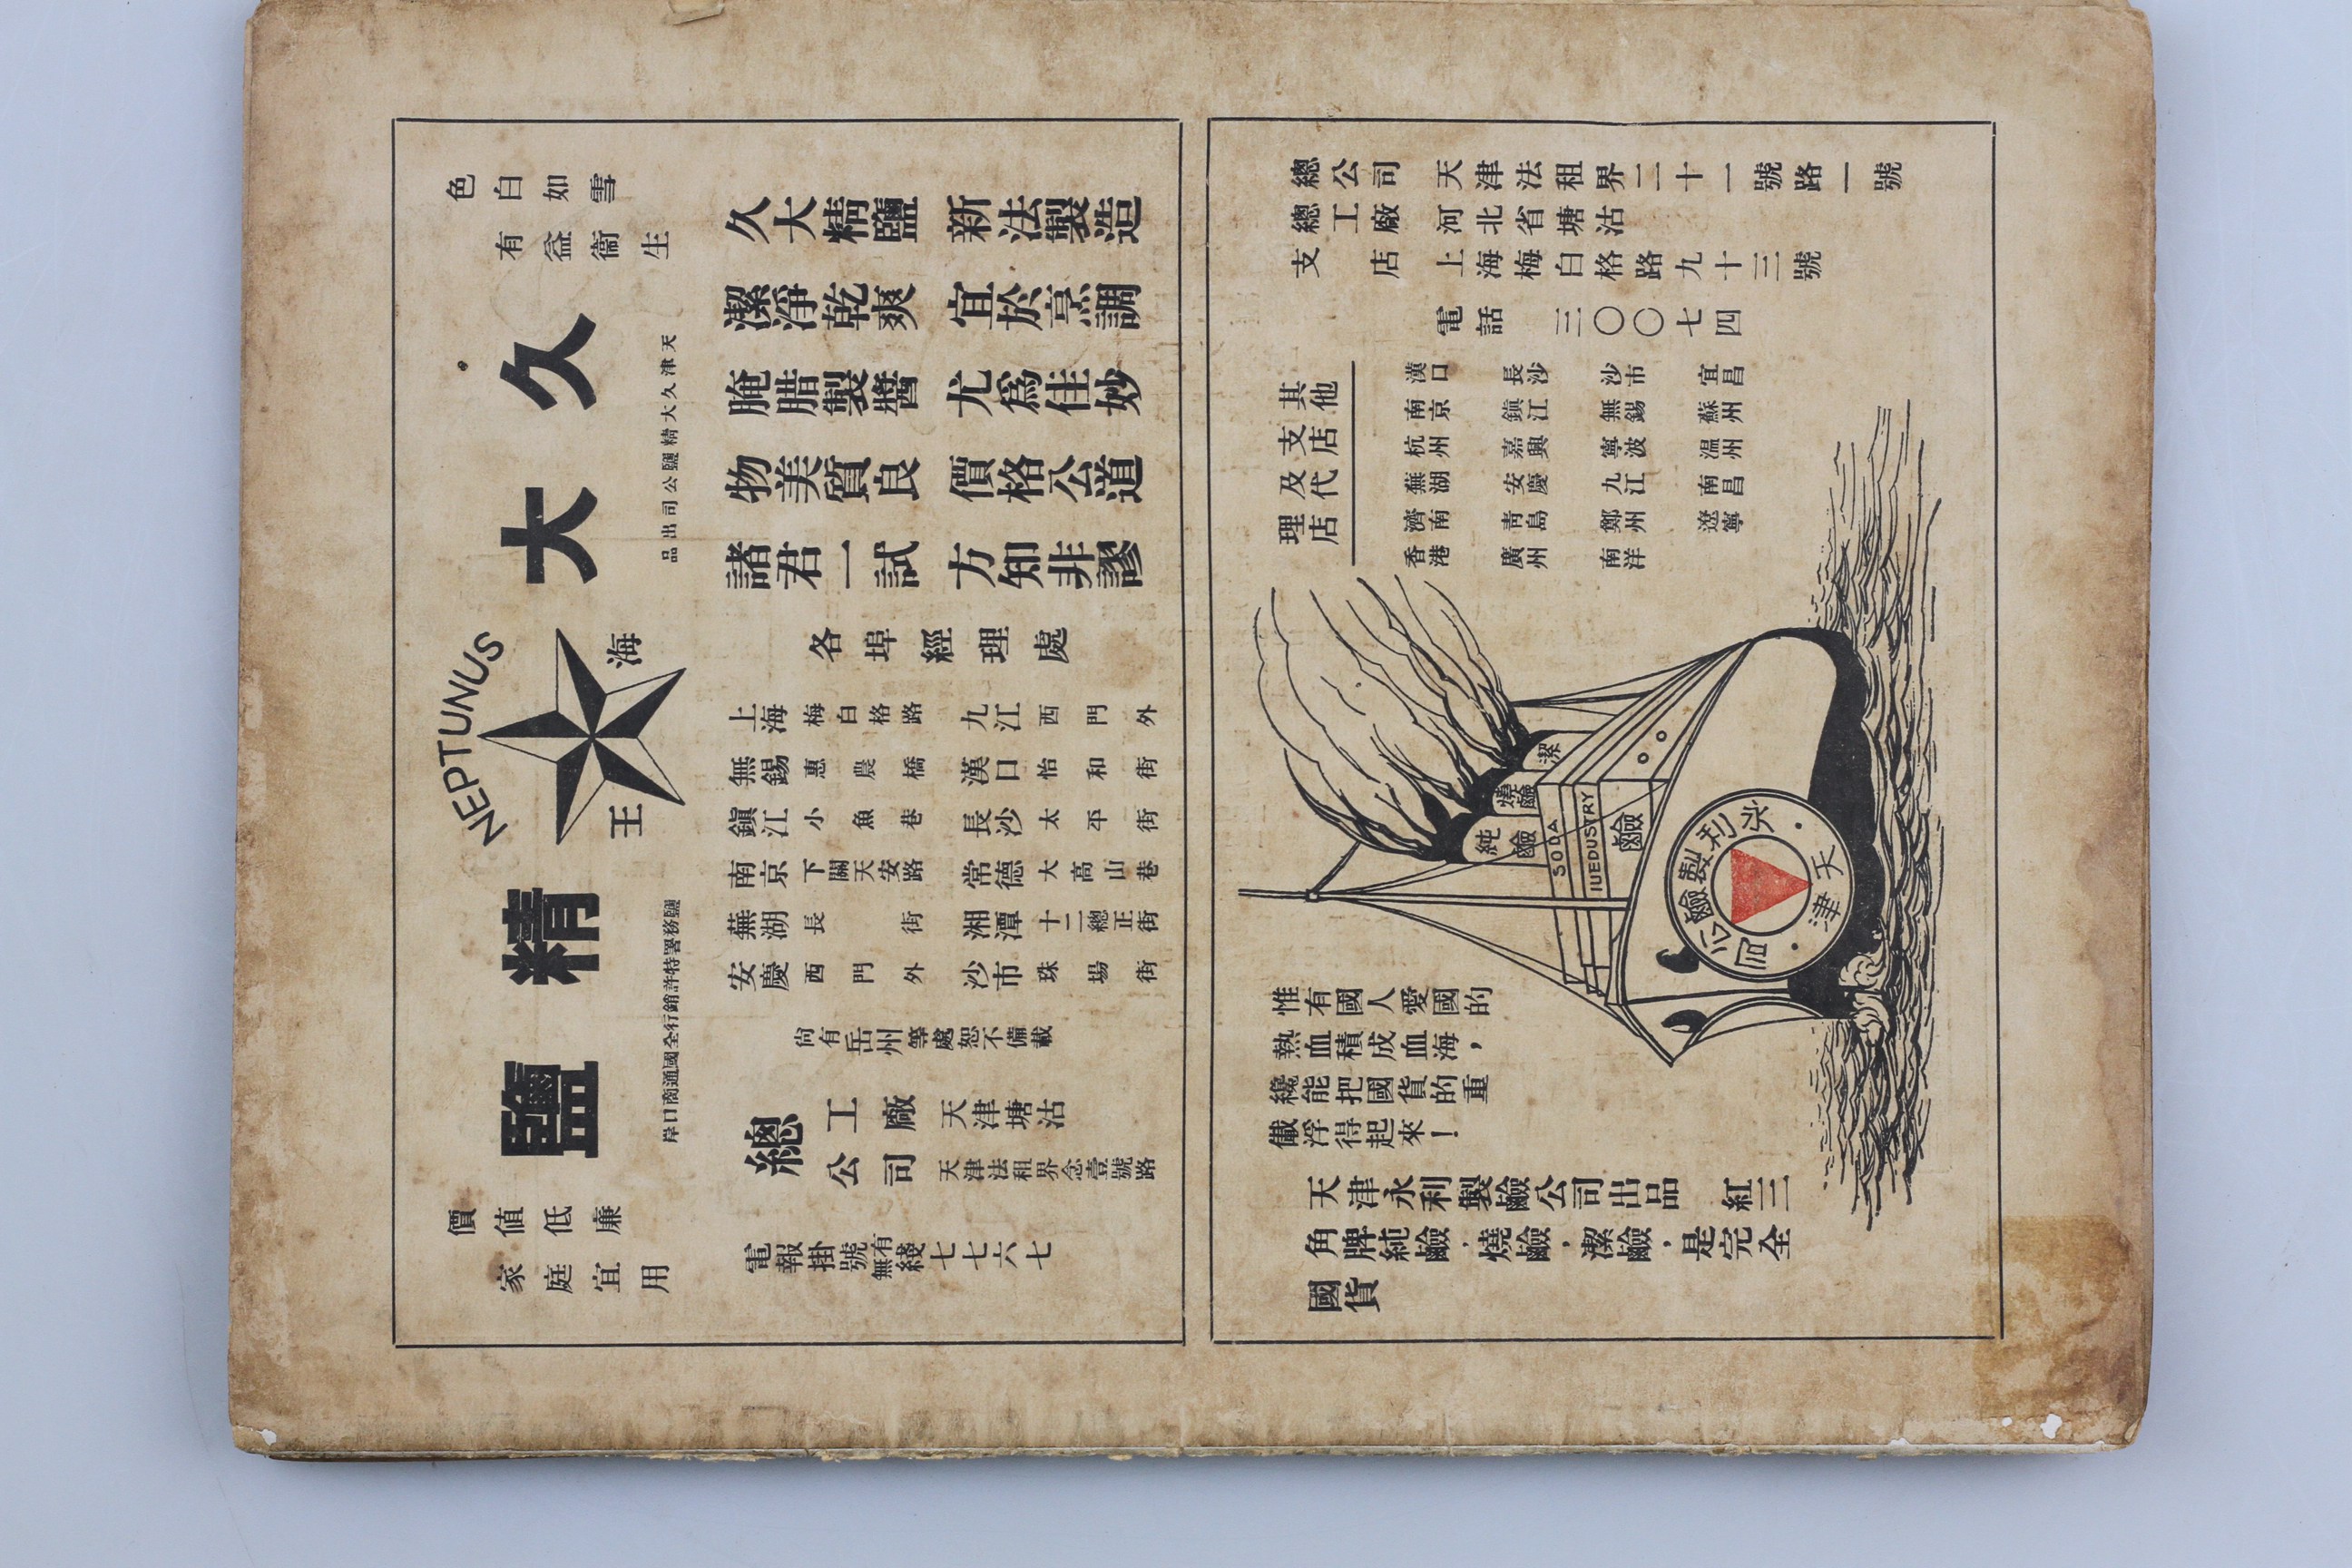 色白如雪
有益衞生
久大精鹽
NEPTUNUS
海王
價值低廉
家庭宜用
天津久大精鹽公司出品
鹽務署特許行銷全國通商口岸
久大精鹽 新法製造
潔淨乾爽 宜於烹調
腌腊製醬 尤爲佳妙
物美質良 價格公道
諸君一試 方知非謬
各埠經理處
上海 梅白格路 九江 西門外
無錫 惠農橋 漢口 怡和街
鎭江 小魚巷 長沙 太平街
南京 下關天安路 常德 大高山巷
蕪湖 長街 湘潭 十二總正街
安慶 西門外 沙市 珠場街
尙有岳州等處恕不備載
總工廠 天津塘沽
總公司 天津法租界念壹號路
電報掛號 有線無線 七七六七
總公司 天津法租界二十一號路一號
總工廠 河北省塘沽
支店 上海梅白格路九十三號
電話 三〇〇七四
其他支店及代理店
漢口 長沙 沙市 宜昌
南京 鎭江 無錫 蘇州
杭州 嘉興 寧波 温州
蕪湖 安慶 九江 南昌
濟南 靑島 鄭州 遼寧
香港 廣州 南洋
潔
燒鹼
純鹼
SODA
IUEDUSTRY
鹼
天津永利製鹼公司
惟有國人愛國的
熱血積成血海，
纔能把國貨的重
儎浮得起來！
天津永利製鹼公司出品 紅三
角牌純鹼，燒鹼，潔鹼，是完全
國貨